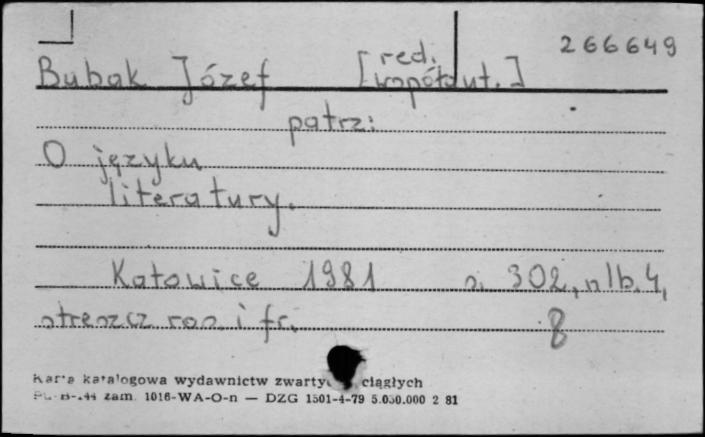 266649
Bubak Józef [red. współaut.]
patrz:
O języku
literatury.
Katowice 1981 s. 302, nlb. 4,
streszcz ros. i fr. 8
Karta katalogowa wydawnictw zwartych ciągłych
zam. 1016-WA-O-n — DZG 1501-4-79 5.050.000 2 81